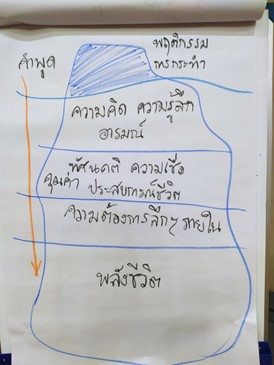 คำพูด
พฤติกรรม
การกระทำ
ความคิด ความรู้สึก
อารมณ์
ทัศนคติ ความเชื่อ
คุณค่า ประสบการณ์ชีวิต
ความต้องการลึกๆ ภายใน
พลังชีวิต